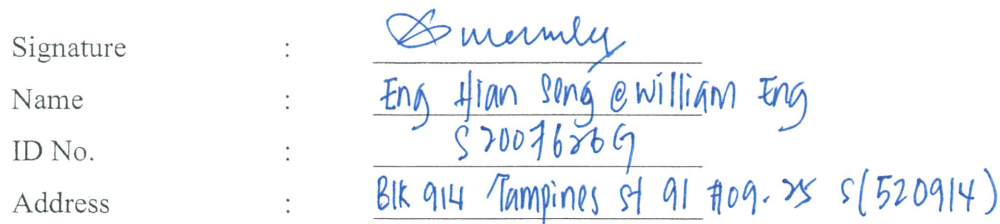 Signature :
Name : Eng Hian Seng @ William Eng
ID No. : S2007626G
Address : Blk 914 Tampines St 91 #09-25 S(520914)